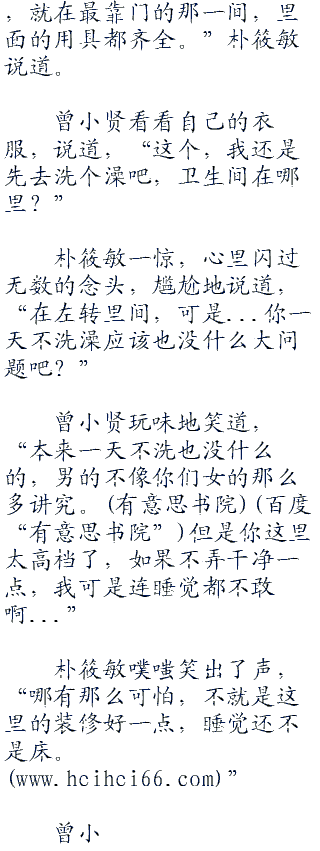 ，就在最靠门的那一间，里
面的用具都齐全。”朴筱敏
说道。
曾小贤看看自己的衣
服，说道，“这个，我还是
先去洗个澡吧，卫生间在哪
里？”
朴筱敏一惊，心里闪过
无数的念头，尴尬地说道，
“在左转里间，可是...你一
天不洗澡应该也没什么大问
题吧？”
曾小贤玩味地笑道，
“本来一天不洗也没什么
的，男的不像你们女的那么
多讲究。(有意思书院)(百度
“有意思书院”)但是你这里
太高档了，如果不弄干净一
点，我可是连睡觉都不敢
啊...”
朴筱敏噗嗤笑出了声，
“哪有那么可怕，不就是这
里的装修好一点，睡觉还不
是床。
(www.hcihci66.com)”
曾小